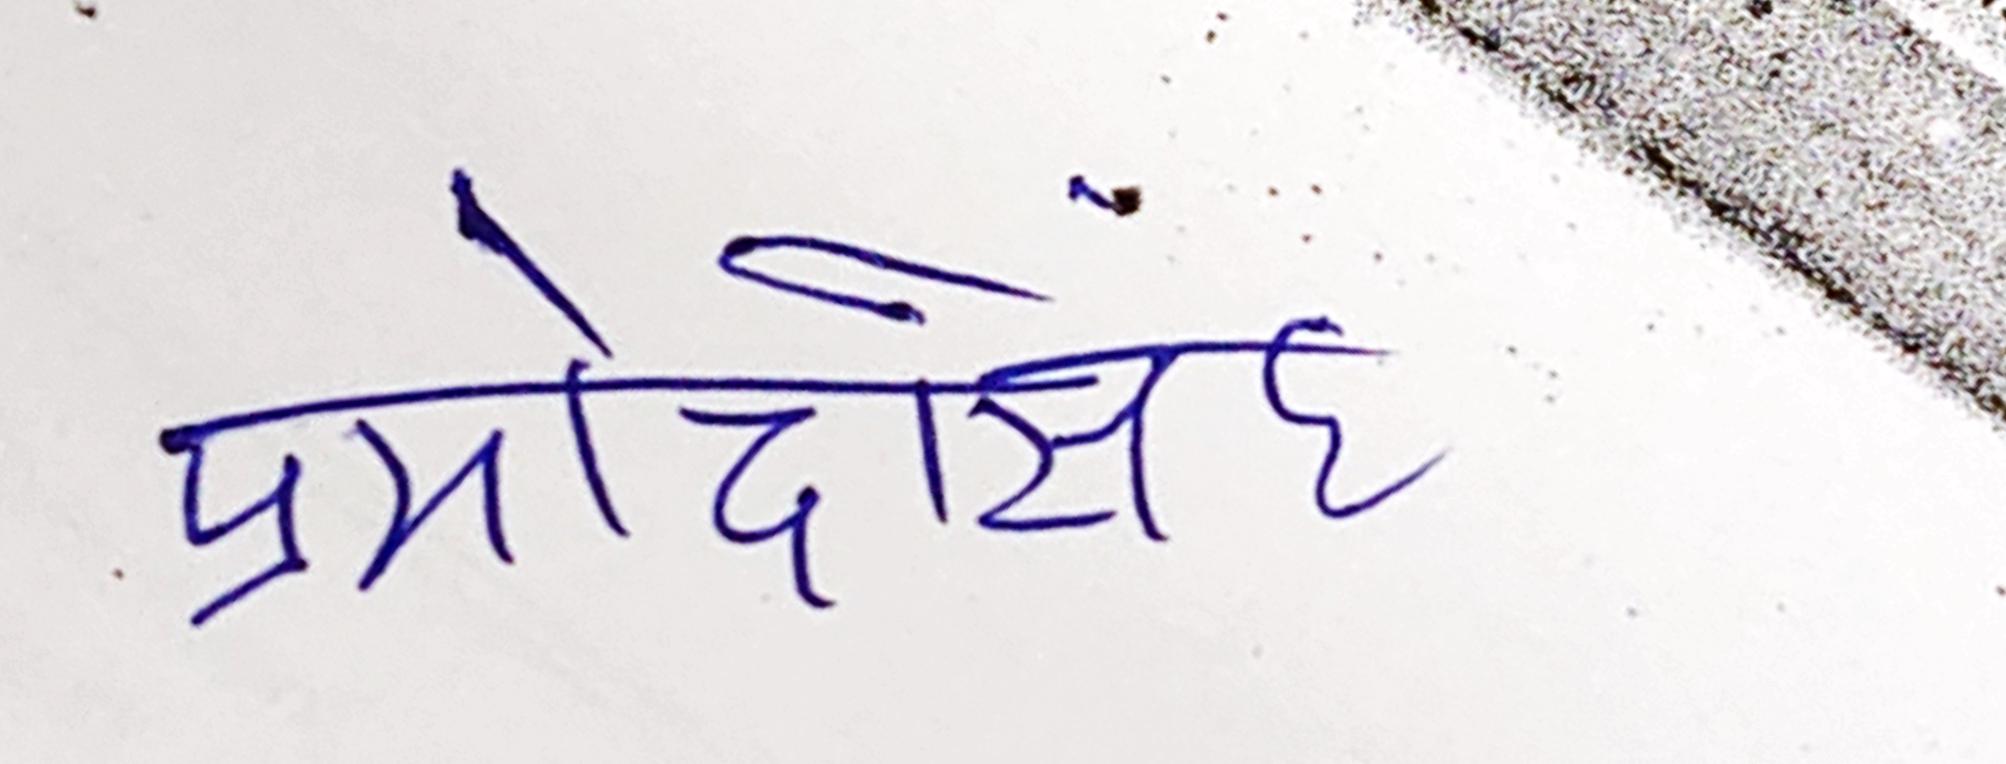 प्रमोद सिंह